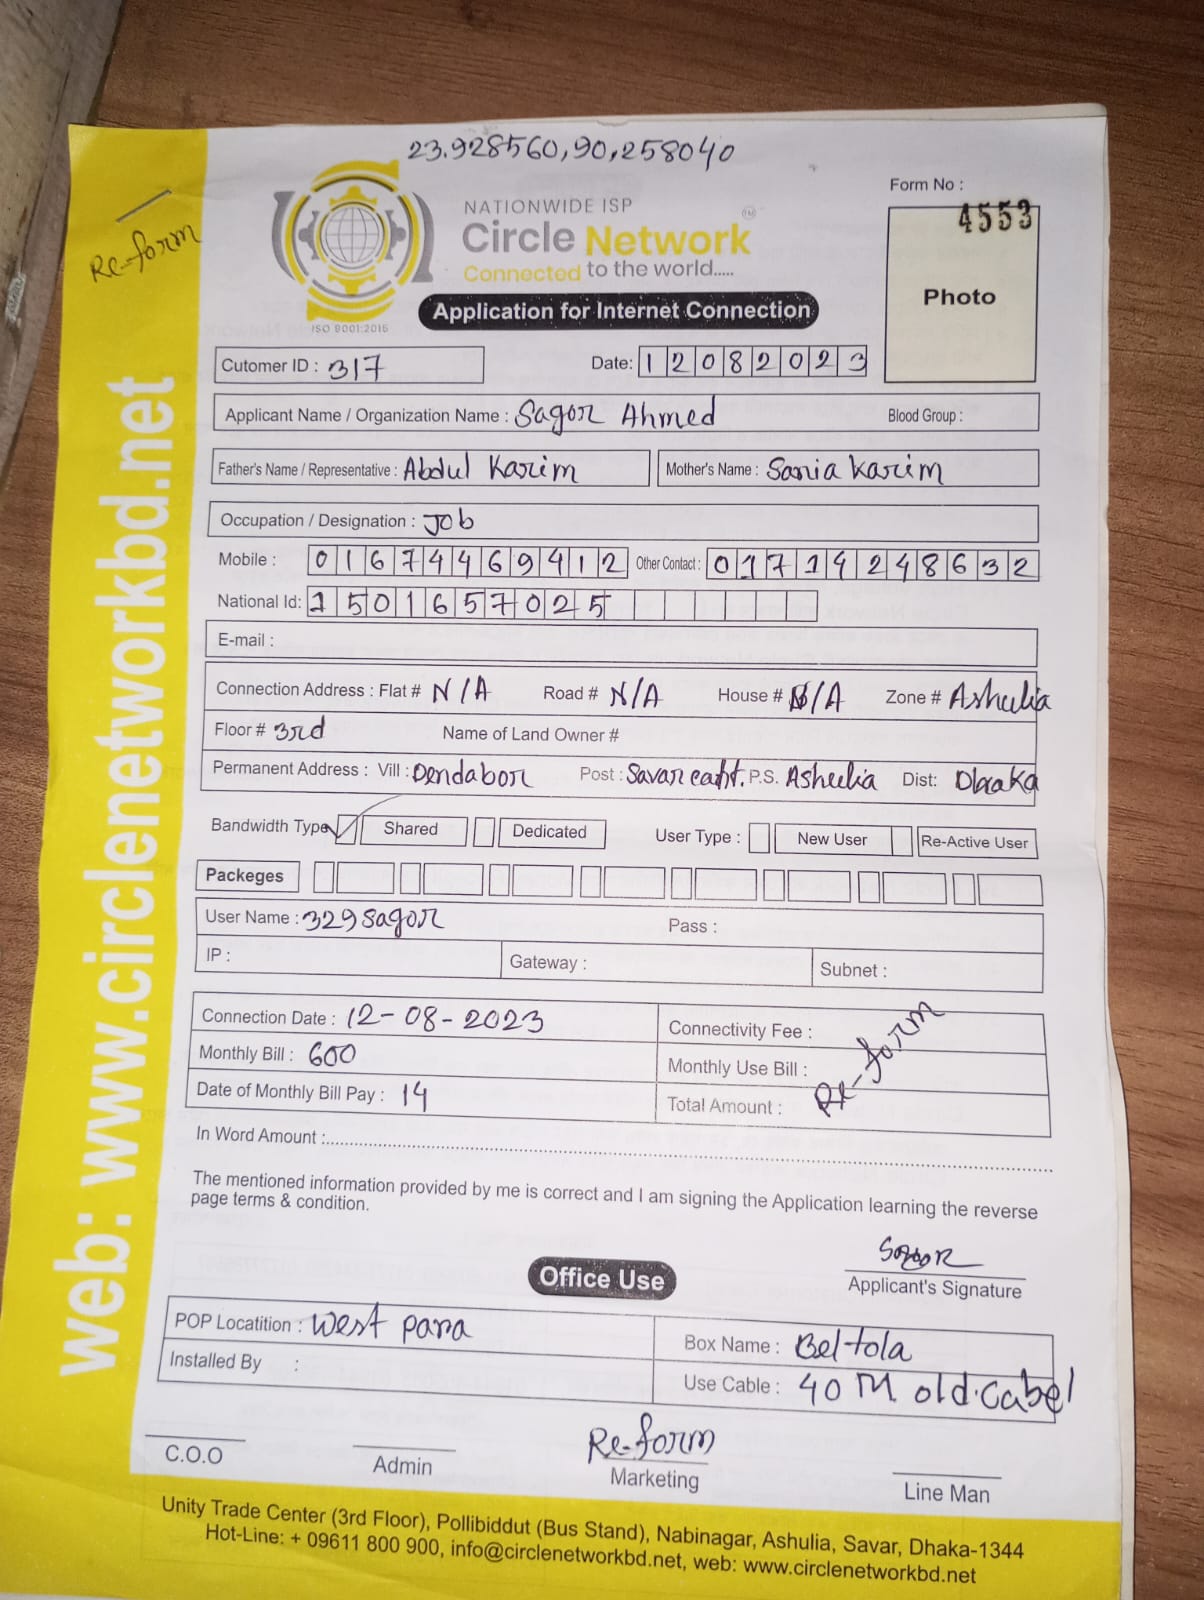 23.928560,90,258040
Re-form
NATIONWIDE ISP
Circle Network
TM
Connected to the world.....
ISO 9001:2015
Application for Internet Connection
Form No :
4553
Photo
Cutomer ID : 317
Date: 12082023
Applicant Name / Organization Name : Sagor Ahmed Blood Group :
Father's Name / Representative : Abdul Karim Mother's Name : Sania Karim
Occupation / Designation : Job
Mobile : 01674469412 Other Contact : 01714248632
National Id: 1501657025
E-mail :
Connection Address : Flat # N/A Road # N/A House # N/A Zone # Ashulia
Floor # 3rd Name of Land Owner #
Permanent Address : Vill : Dendabor Post : Savar cantt. P.S. Ashulia Dist: Dhaka
Bandwidth Type Shared Dedicated User Type : New User Re-Active User
Packeges
User Name : 329sagor Pass :
IP : Gateway : Subnet :
Connection Date : 12-08-2023 Connectivity Fee :
Monthly Bill : 600 Monthly Use Bill :
Date of Monthly Bill Pay : 14 Total Amount :
Re-form
In Word Amount :
The mentioned information provided by me is correct and I am signing the Application learning the reverse
page terms & condition.
Sagor
Applicant's Signature
Office Use
POP Locatition : West para Box Name : Beltola
Installed By : Use Cable : 40 M old.cabel
Re-form
C.O.O Admin Marketing Line Man
Unity Trade Center (3rd Floor), Pollibiddut (Bus Stand), Nabinagar, Ashulia, Savar, Dhaka-1344
Hot-Line: + 09611 800 900, info@circlenetworkbd.net, web: www.circlenetworkbd.net
web: www.circlenetworkbd.net